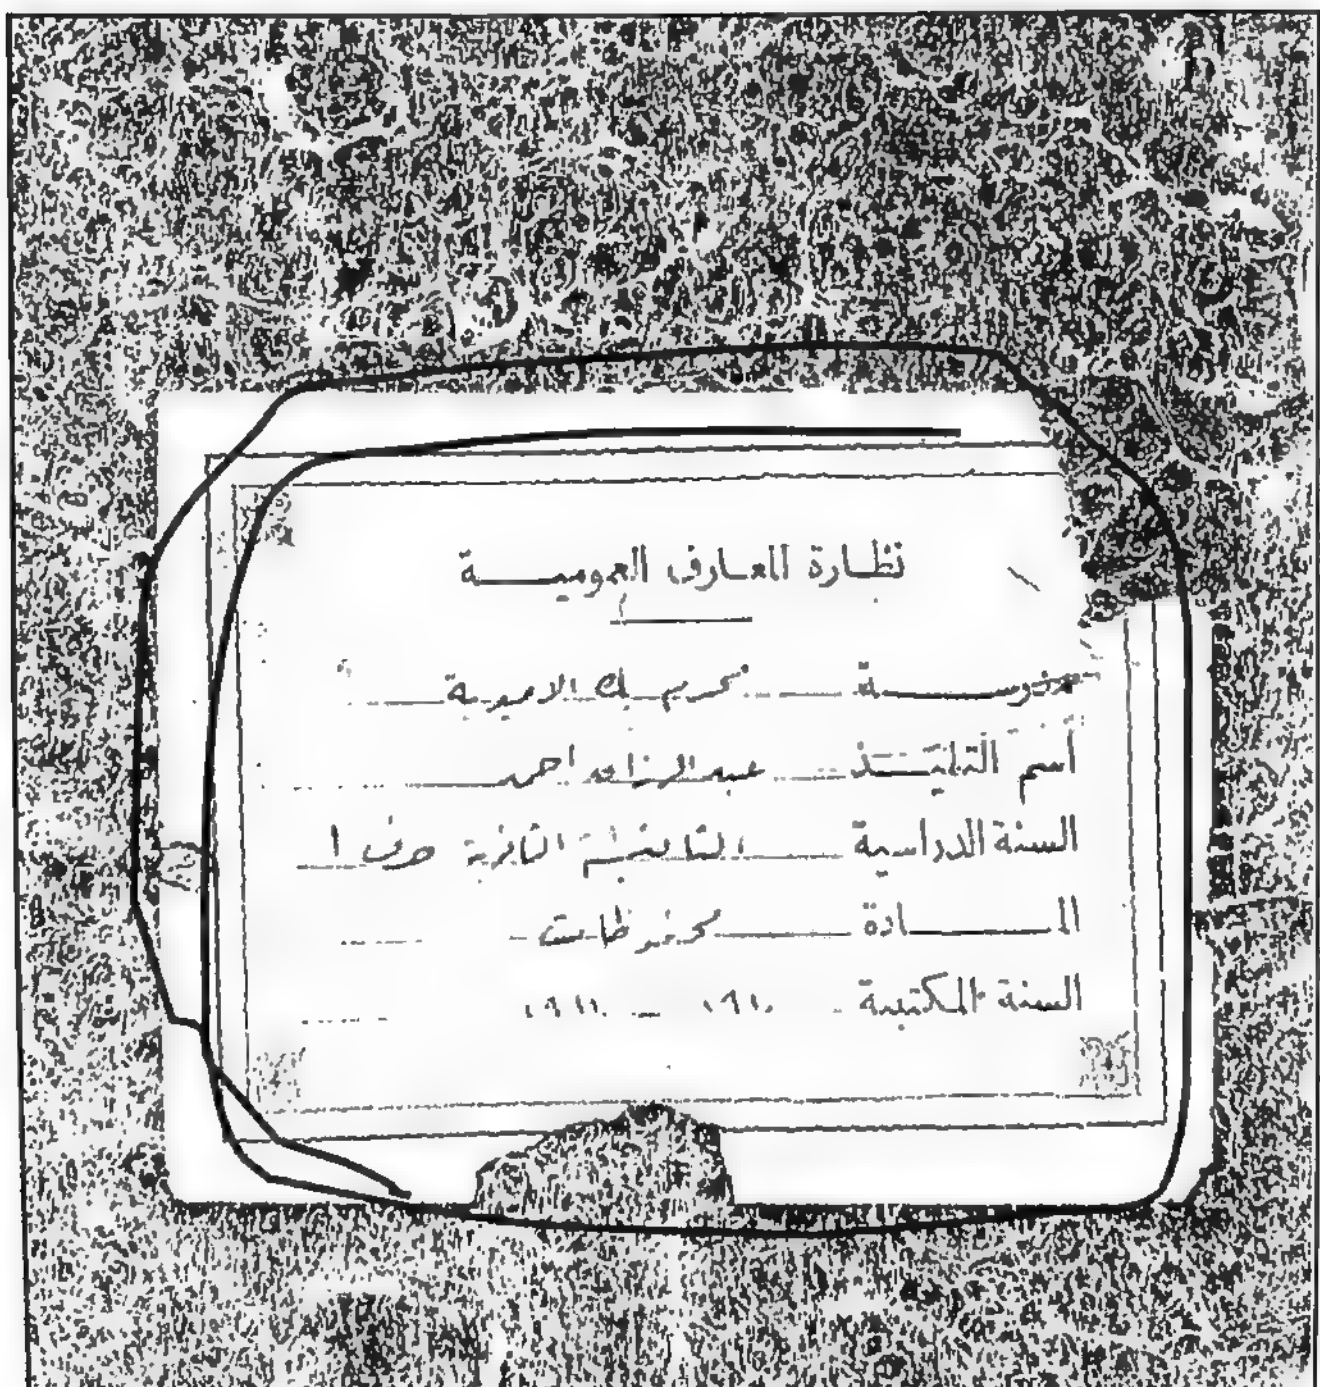 نظارة المعارف العمومية
مدرسة محرم بك الاميرية
أسم التلميذ عبد الرزاق احمد
السنة الدراسية الثانوية حرف ا
المادة محفوظات
السنة المكتبية ١٩١٠ — ١٩١١